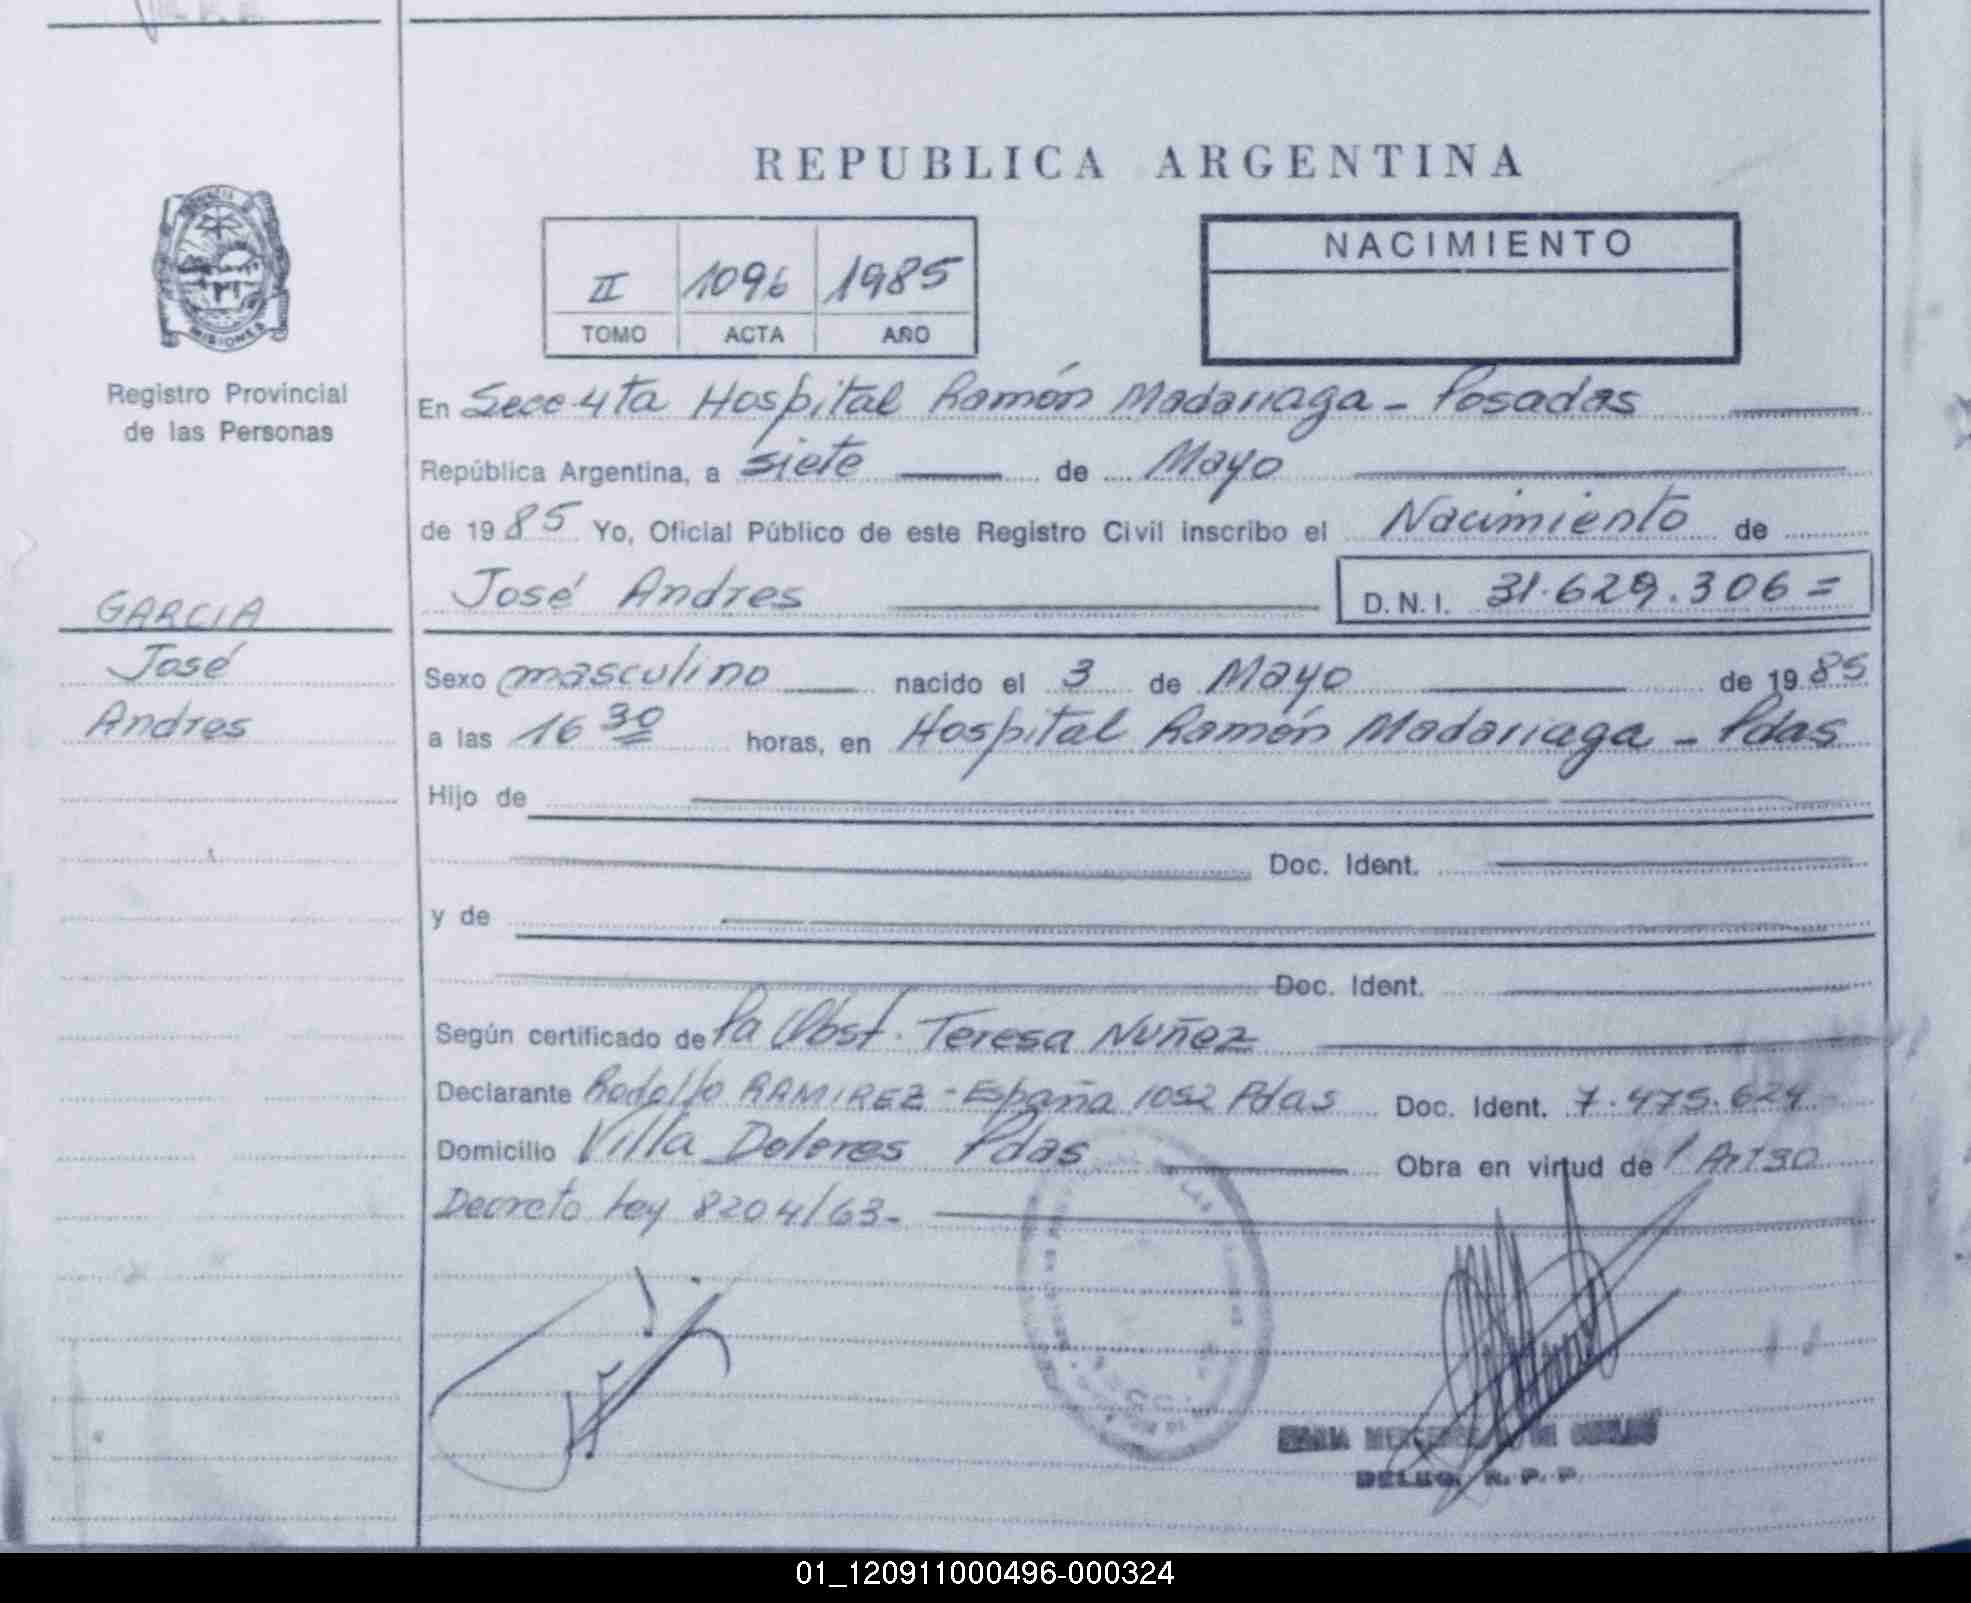 REPUBLICA ARGENTINA
MISIONES
Registro Provincial
de las Personas
II 1096 1985
TOMO ACTA AÑO
NACIMIENTO
En Secc 4ta Hospital Ramón Madariaga - Posadas
República Argentina, a siete de Mayo
de 1985 Yo, Oficial Público de este Registro Civil inscribo el Nacimiento de
José Andres D.N.I. 31.629.306=
GARCIA
José
Andres
Sexo masculino nacido el 3 de Mayo de 1985
a las 16 30 horas, en Hospital Ramón Madariaga - Pdas
Hijo de
Doc. Ident.
y de
Doc. Ident.
Según certificado de Pa Obst. Teresa Nuñez
Declarante Rodolfo RAMIREZ - España 1052 Pdas Doc. Ident. 7.475.624
Domicilio Villa Dolores Pdas Obra en virtud de Art 30
Decreto Ley 8204/63-
DELEG. R. P. P.
01_120911000496-000324